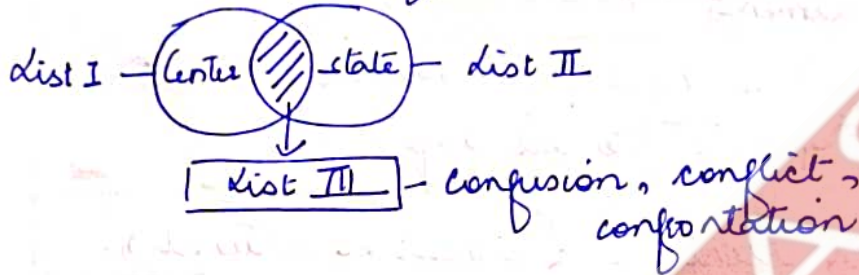 List I Center state List II
List III - confusion, conflict,
confrontation